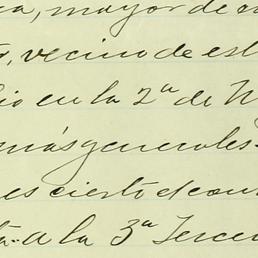 a, mayor de
o, vecino de es
io en la 2ª de M
más generales
es cierto el con
ta. a la 3ª Terce